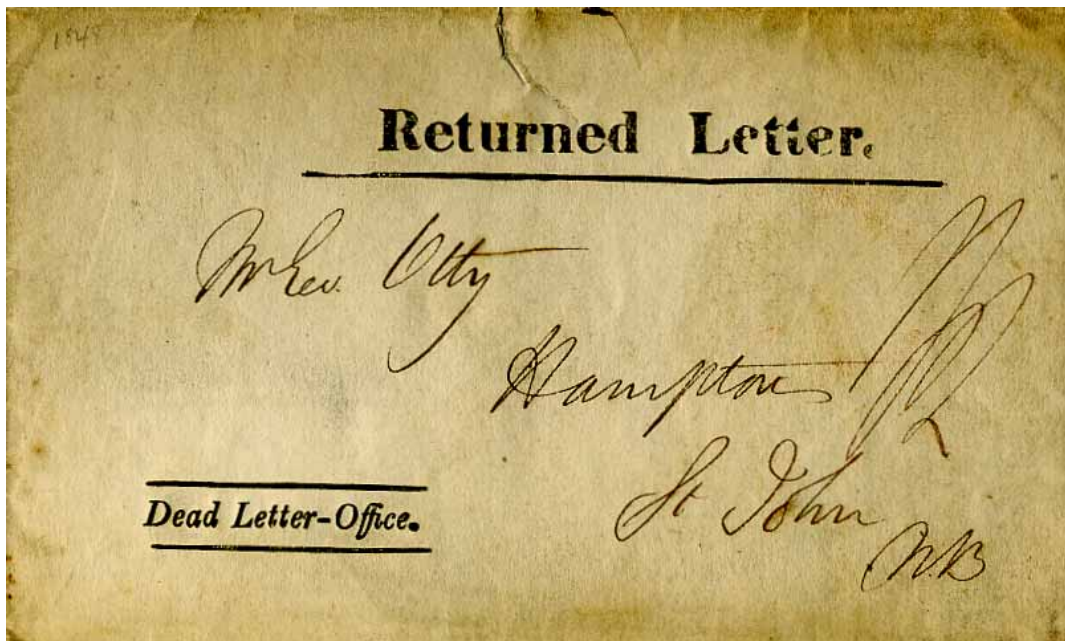 1848
Returned Letter.
Mr Geo. Otty
Hampton
St John
N.B
Dead Letter-Office.